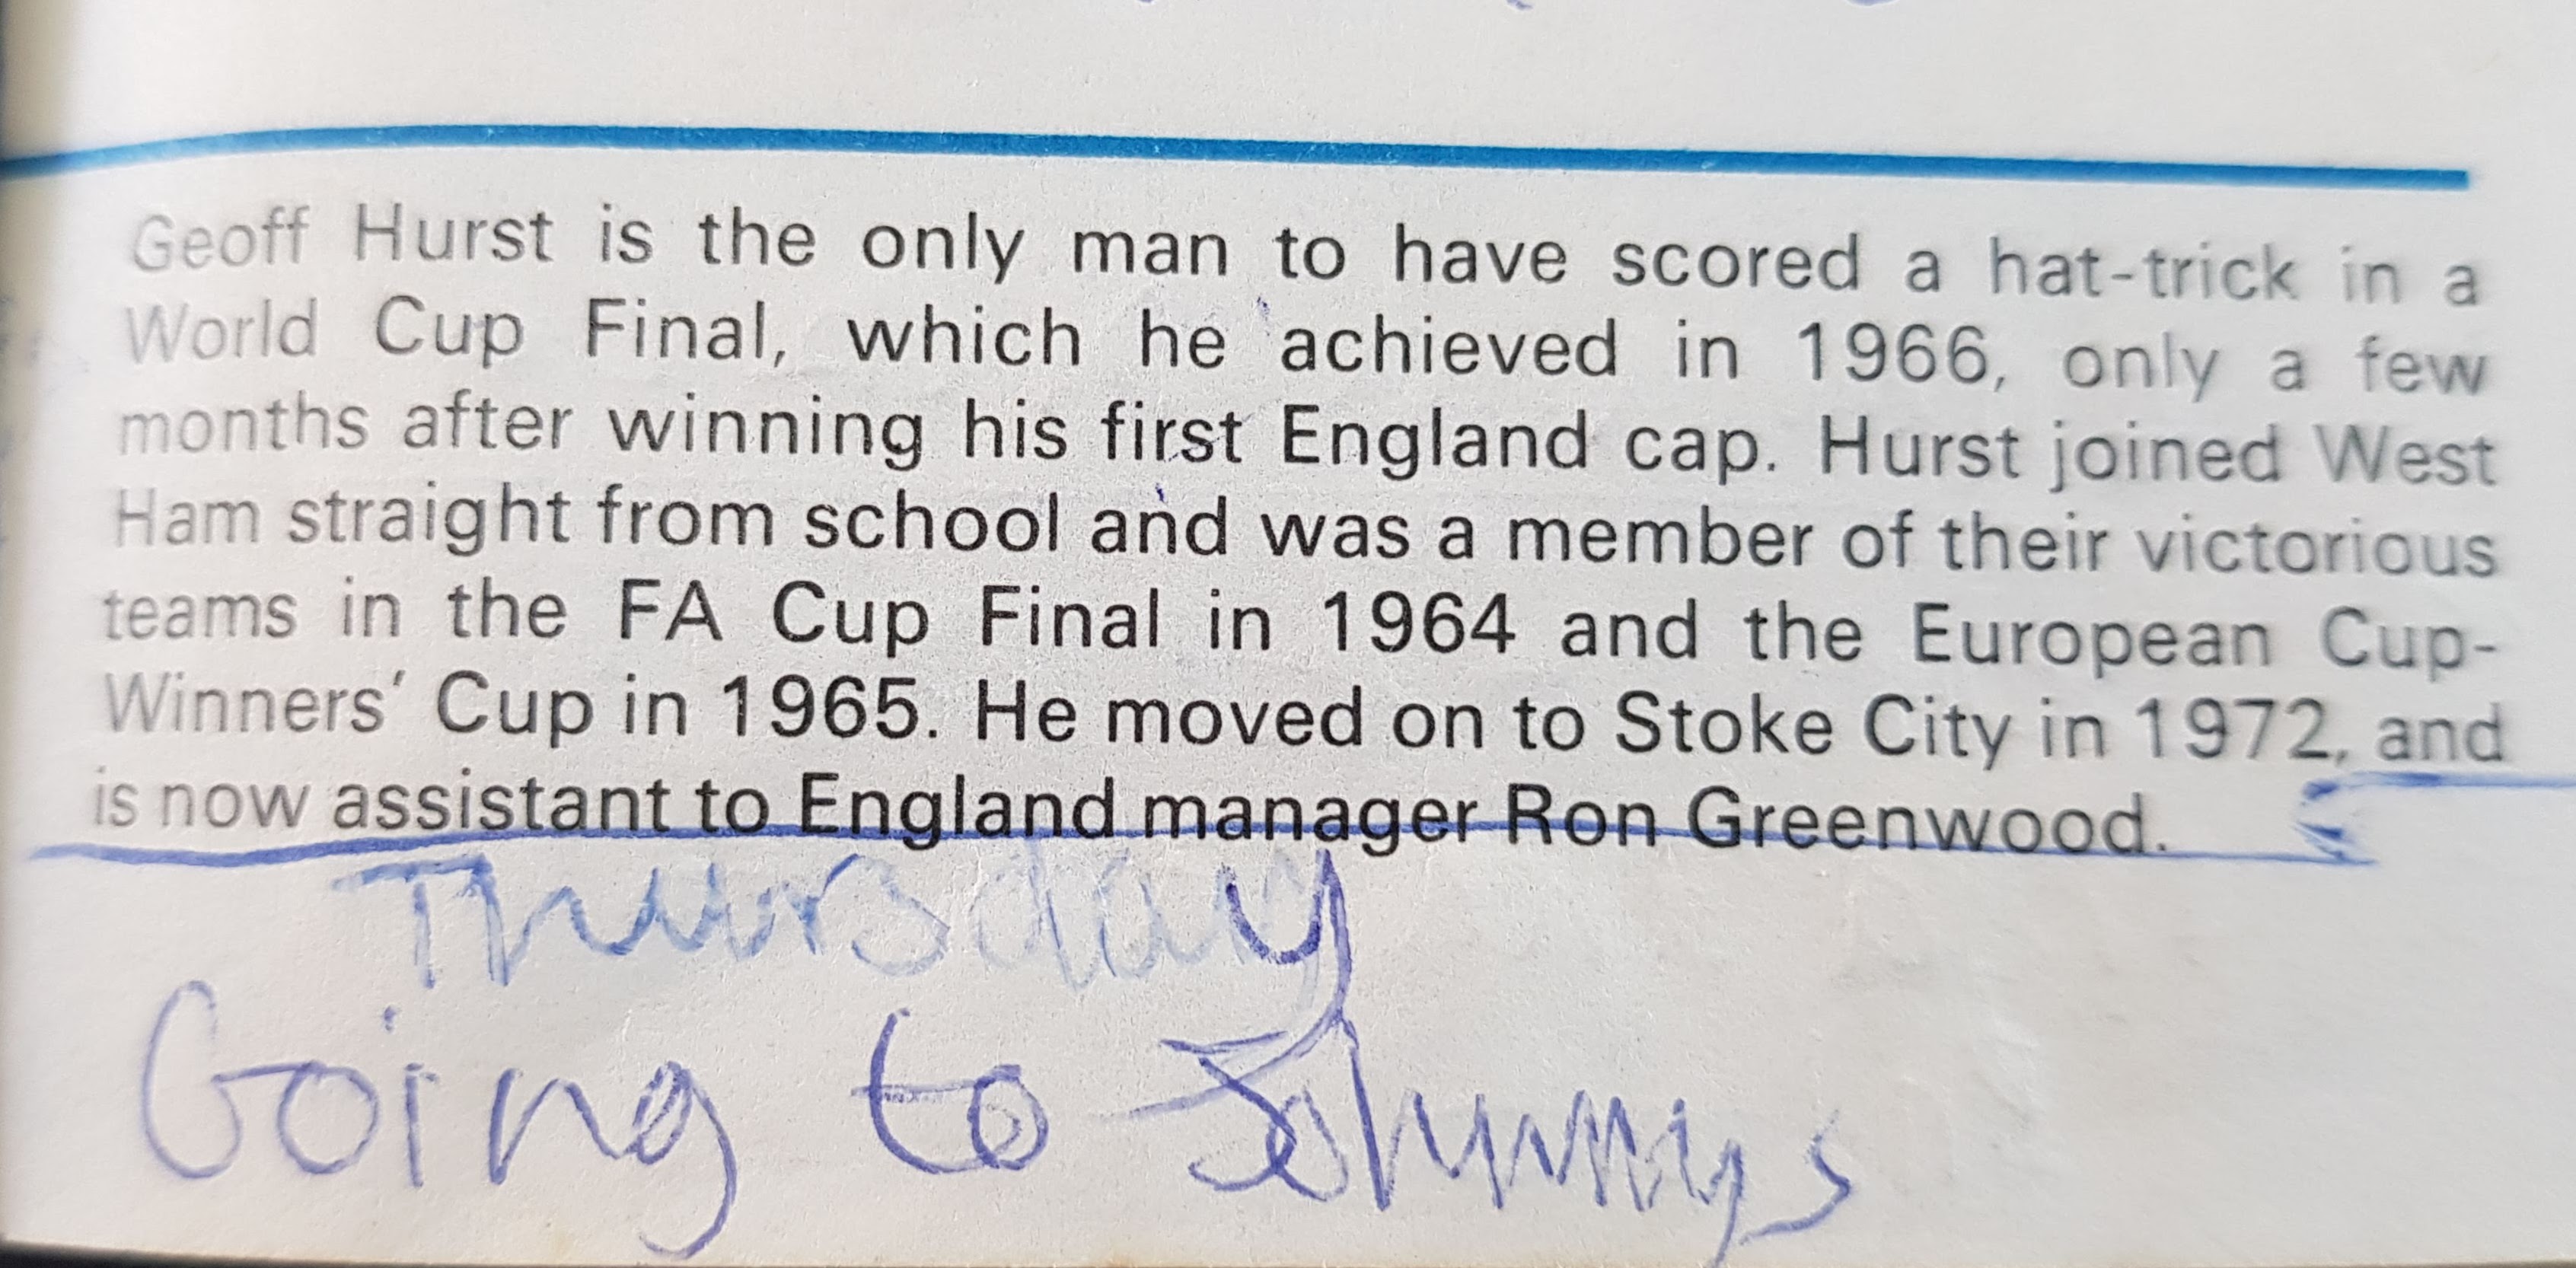 Geoff Hurst is the only man to have scored a hat-trick in a
World Cup Final, which he achieved in 1966, only a few
months after winning his first England cap. Hurst joined West
Ham straight from school and was a member of their victorious
teams in the FA Cup Final in 1964 and the European Cup-
Winners' Cup in 1965. He moved on to Stoke City in 1972, and
is now assistant to England manager Ron Greenwood.
Thursday
Going to Johnnys